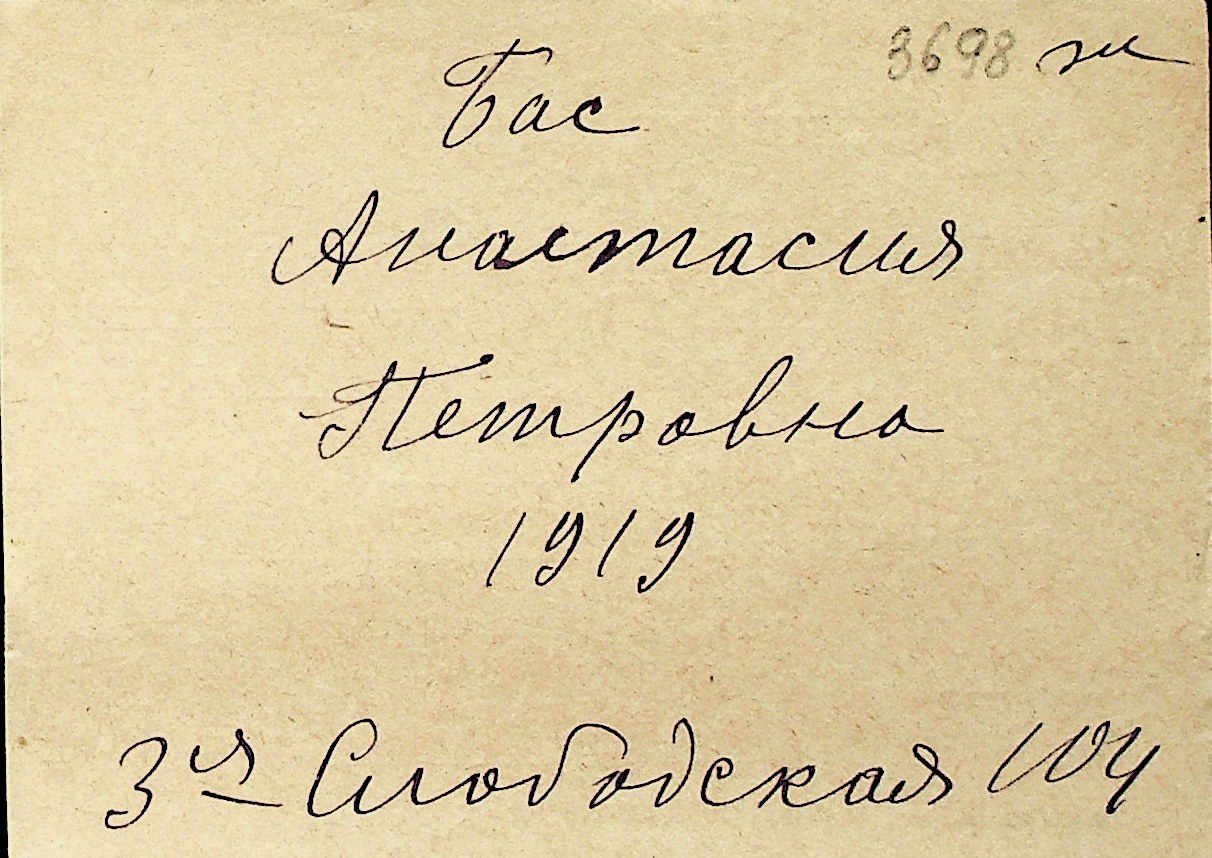 3698 ж
Бас
Анастасия
Петровна
1919
3я Слободская 104